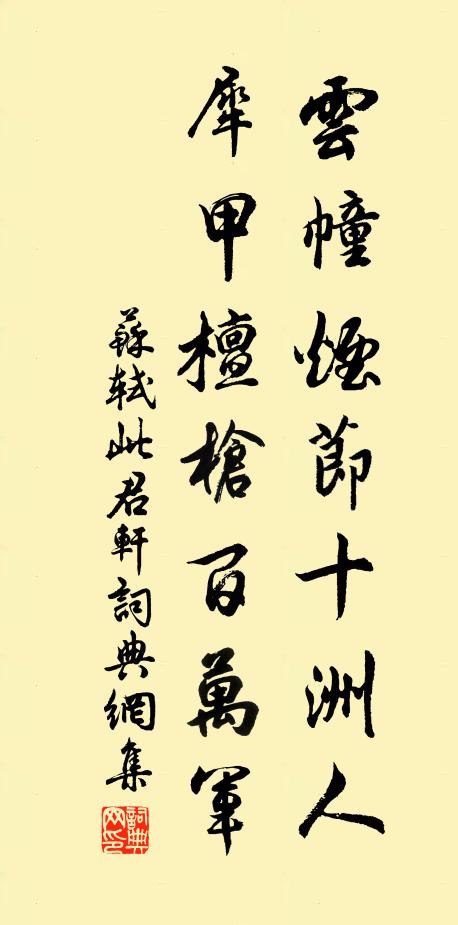 雲幢煙節十洲人
犀甲檀槍百萬軍
蘇軾此君軒詞典網集
詞典網印